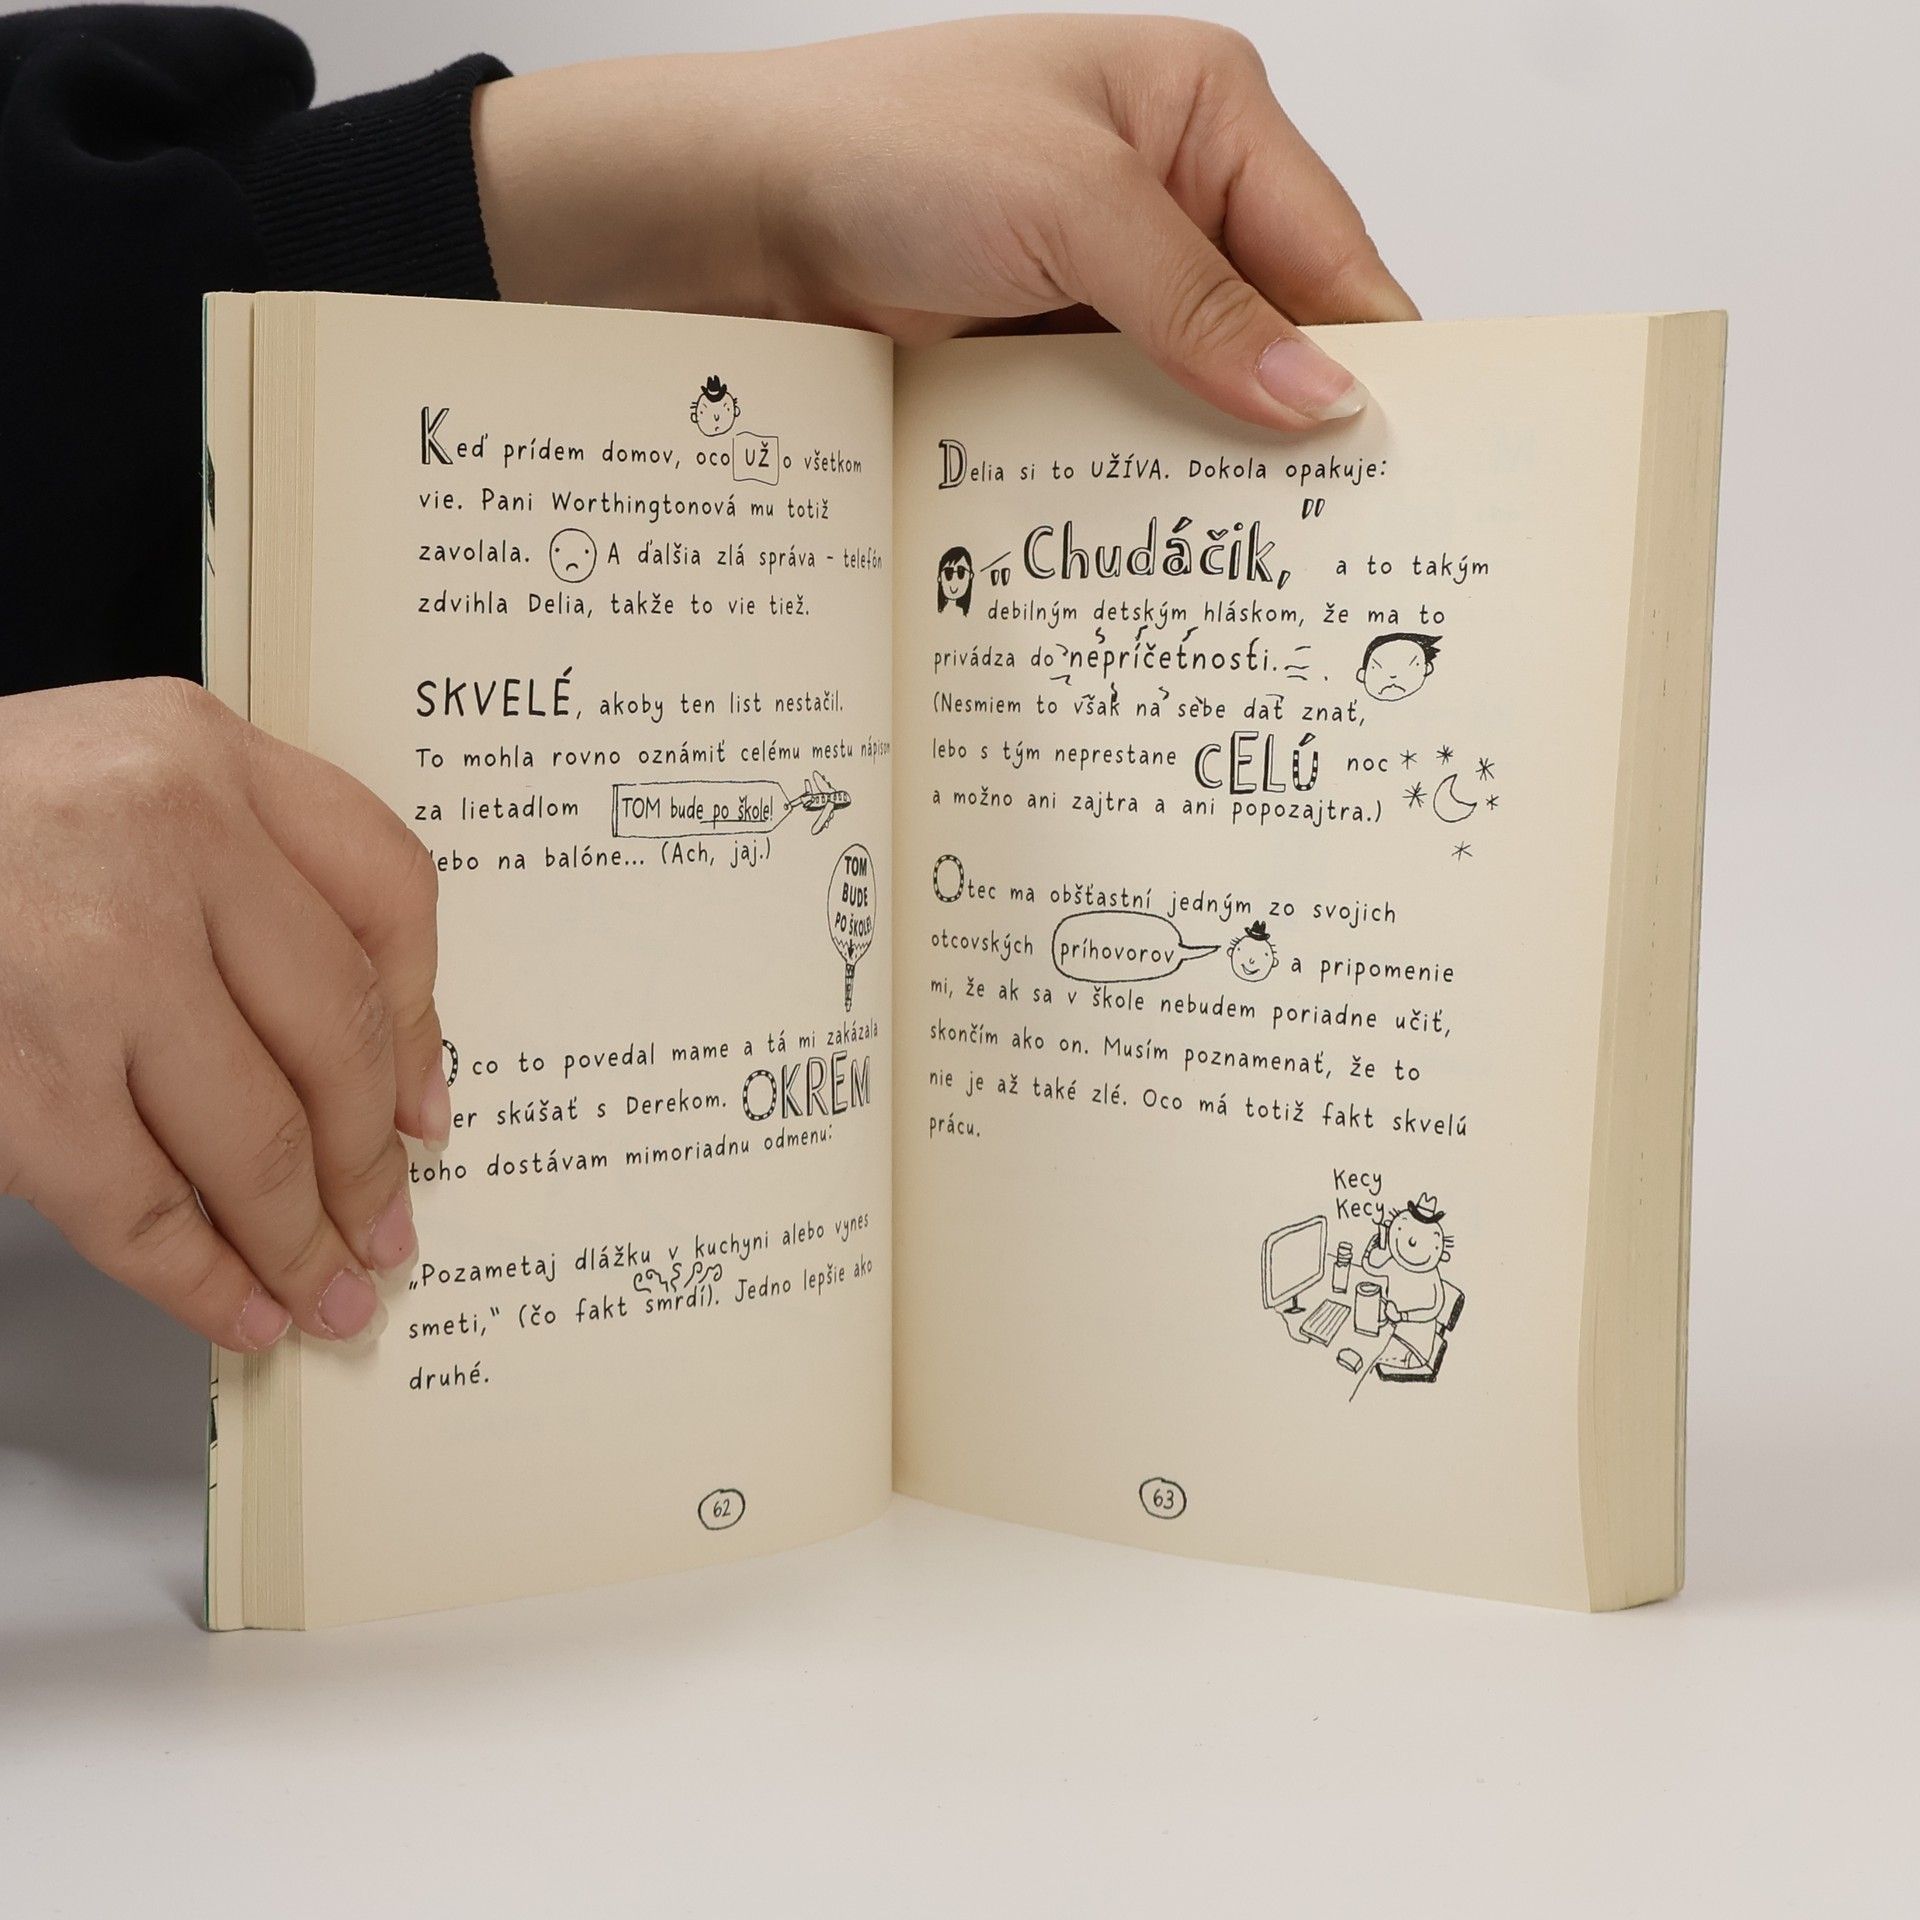 Keď prídem domov, oco UŽ o všetkom
vie. Pani Worthingtonová mu totiž
zavolala. A ďalšia zlá správa - telefón
zdvihla Delia, takže to vie tiež.
SKVELÉ, akoby ten list nestačil.
To mohla rovno oznámiť celému mestu nápisom
za lietadlom TOM bude po škole!
lebo na balóne... (Ach, jaj.)
TOM
BUDE
PO ŠKOLE!
O co to povedal mame a tá mi zakázala
er skúšať s Derekom. OKREM
toho dostávam mimoriadnu odmenu:
„Pozametaj dlážku v kuchyni alebo vynes
smeti,“ (čo fakt smrdí). Jedno lepšie ako
druhé.
62
Delia si to UŽÍVA. Dokola opakuje:
„Chudáčik,“ a to takým
debilným detským hláskom, že ma to
privádza do nepríčetnosti.
(Nesmiem to však na sebe dať znať,
lebo s tým neprestane CELÚ noc
a možno ani zajtra a ani popozajtra.)
Otec ma obšťastní jedným zo svojich
otcovských príhovorov a pripomenie
mi, že ak sa v škole nebudem poriadne učiť,
skončím ako on. Musím poznamenať, že to
nie je až také zlé. Oco má totiž fakt skvelú
prácu.
Kecy
Kecy
63